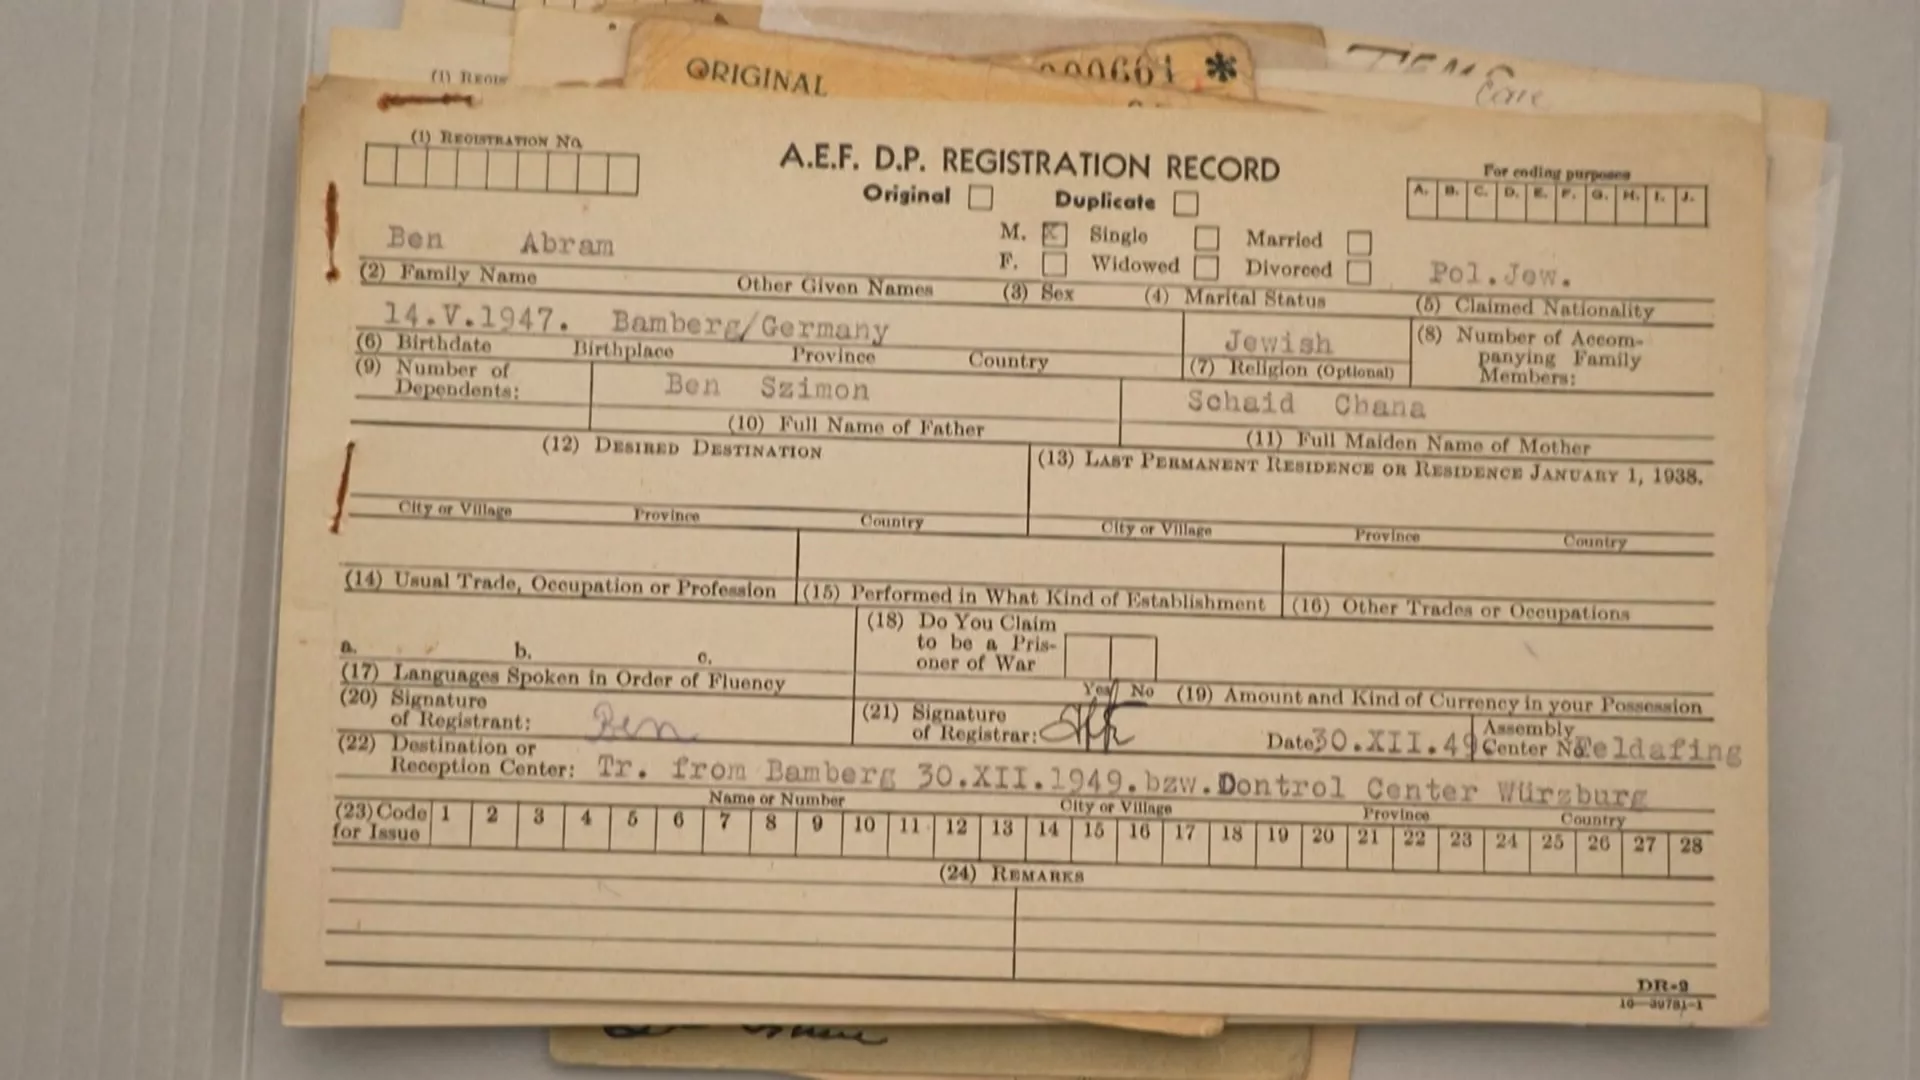 ORIGINAL
000661 *
(1) REGIS
Care
(1) REGISTRATION No.
A.E.F. D.P. REGISTRATION RECORD
For coding purposes
Original Duplicate
A. B. C. D. E. F. G. H. I. J.
Ben Abram
M. X Single Married
F. Widowed Divorced
Pol.Jew.
(2) Family Name Other Given Names (3) Sex (4) Marital Status (5) Claimed Nationality
14.V.1947. Bamberg/Germany
Jewish
(8) Number of Accom-
panying Family
Members:
(6) Birthdate Birthplace Province Country (7) Religion (Optional)
(9) Number of
Dependents:
Ben Szimon
Schaid Chana
(10) Full Name of Father (11) Full Maiden Name of Mother
(12) DESIRED DESTINATION (13) LAST PERMANENT RESIDENCE OR RESIDENCE JANUARY 1, 1938.
City or Village Province Country City or Village Province Country
(14) Usual Trade, Occupation or Profession (15) Performed in What Kind of Establishment (16) Other Trades or Occupations
a. b. c.
(17) Languages Spoken in Order of Fluency
(18) Do You Claim
to be a Pris-
oner of War
Yes No
(19) Amount and Kind of Currency in your Possession
(20) Signature
of Registrant: Ben
(21) Signature
of Registrar:
Date 30.XII.49
Assembly
Center No. Feldafing
(22) Destination or
Reception Center: Tr. from Bamberg 30.XII.1949.bzw.Dontrol Center Würzburg
Name or Number City or Village Province Country
(23) Code
for Issue
1 2 3 4 5 6 7 8 9 10 11 12 13 14 15 16 17 18 19 20 21 22 23 24 25 26 27 28
(24) REMARKS
DR-2
16—39781-1